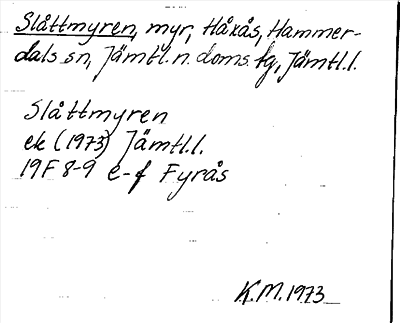 Slåttmyren, myr, Håxås, Hammer-
dals sn, Jämtl. n. doms. fg, Jämtl.l.
Slåttmyren
ek (1973) Jämtl.l.
19F 8-9 e-f Fyrås
K.M. 1973